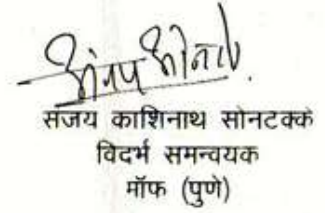 संजय काशिनाथ सोनटक्के
विदर्भ समन्वयक
मॉफ (पुणे)